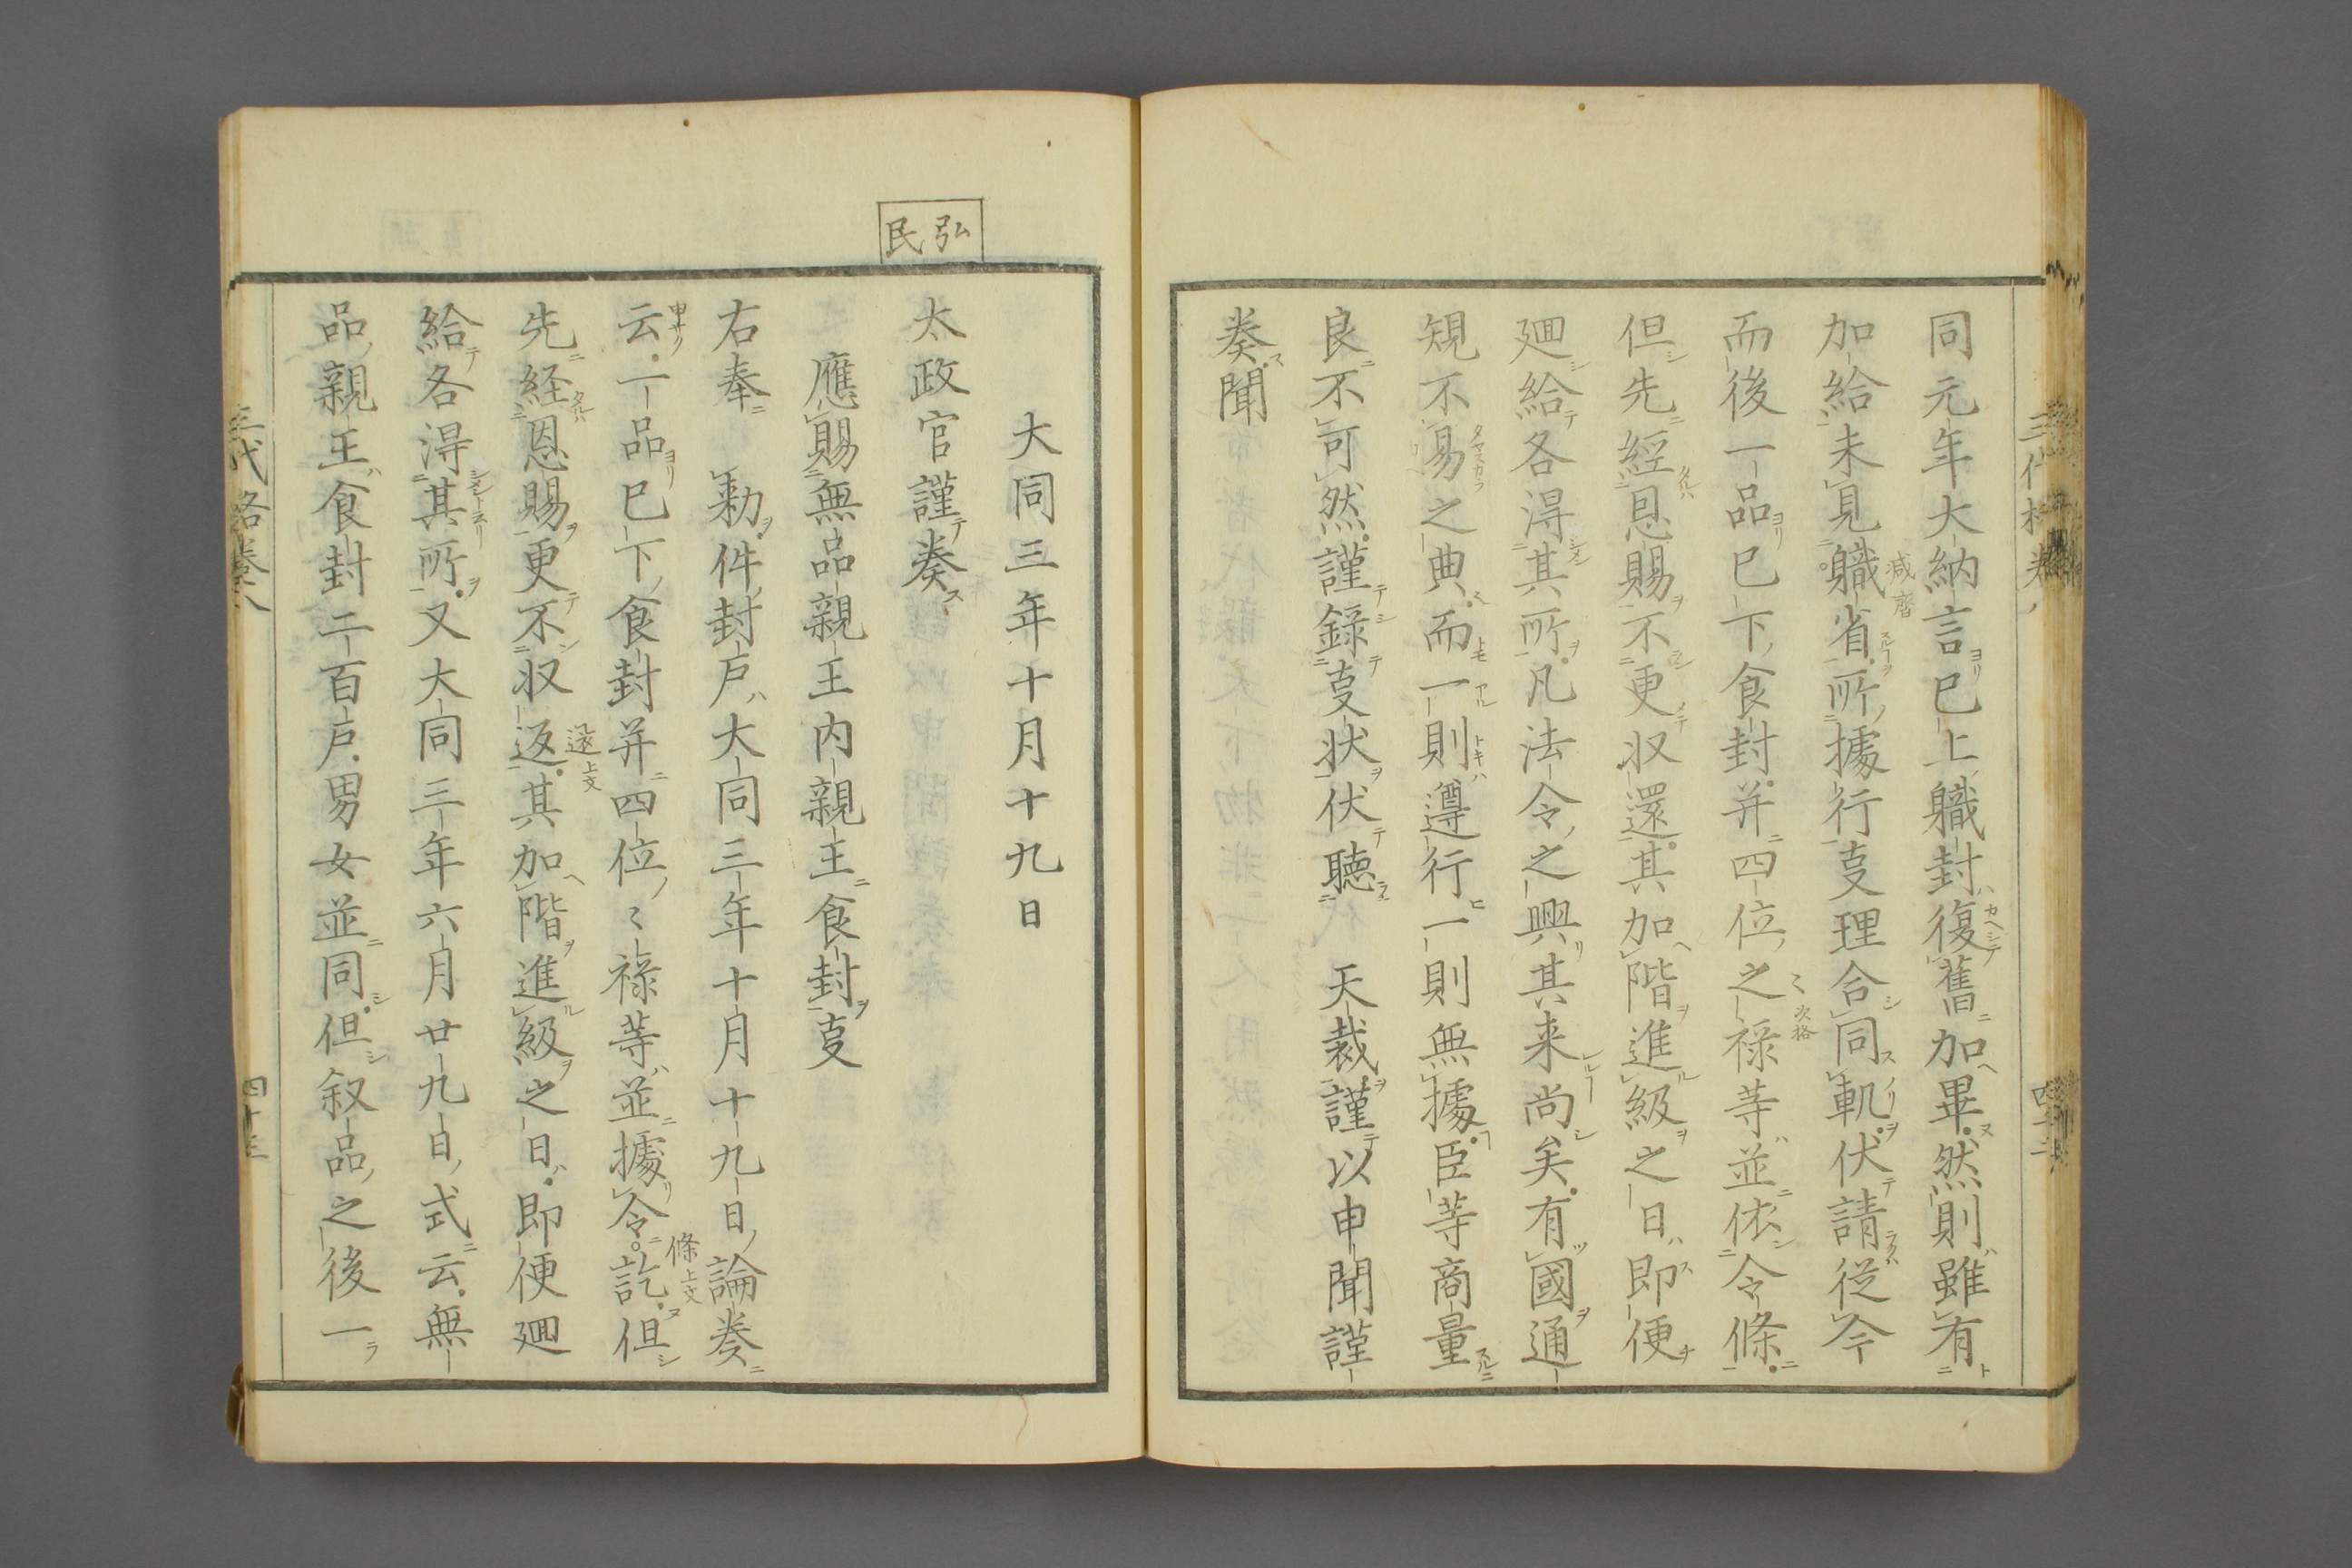 同元年大納言已上職封復舊加畢然則雖有
加給未見職省所據行㕝理合同軌伏請従今
而後一品已下食封并四位之禄等並依令條
但先經恩賜不更収還其加階進級之日即便
廻給各得其所凡法令之興其来尚矣有國通
規不易之典而一則遵行一則無據臣等商量
良不可然謹録㕝状伏聴　天裁謹以申聞謹
奏聞
大同三年十月十九日
弘民
太政官謹奏
應賜無品親王内親王食封㕝
右奉　勅件封戸大同三年十月十九日論奏
云一品已下食封并四位〻禄等並據令訖但
先経恩賜更不収返其加階進級之日即便廻
給各得其所又大同三年六月廿九日式云無
品親王食封二百戸男女並同但叙品之後一
三代格巻八
四十三